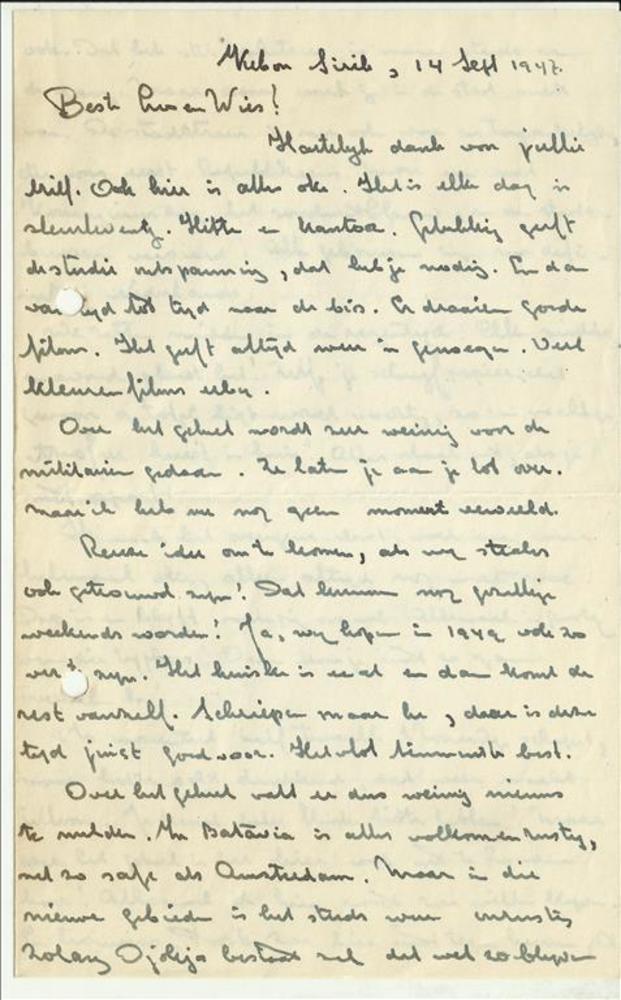 Kebon Sirih, 14 Sept 1947.
Beste en Wies!
Hartelijk dank voor jullie
brief. Ook hier is alles oke. Het is elke dag in
. Hitte en kantoor. Gelukkig geeft
de studie ontspanning, dat heb je nodig. En dan
van tijd tot tijd naar de bios. Er draaien goede
films. Het geeft altijd weer 'n genoegen. Veel
kleurenfilms
Over het geheel wordt zeer weinig voor de
militairen gedaan. Ze laten je aan je lot over.
maar 'k heb me nog geen moment verveeld.
Reuze idee om te komen, als wij straks
ook getrouwd zijn! Dat kunnen nog gezellige
weekends worden! Ja, wij hopen in 1949 ook zo
ver te zijn. Het huiske is er al en dan komt de
rest vanzelf. Scheiepen maar he, daar is deze
tijd juist goed voor. Het vlot binnenste best.
Over het geheel valt er dus weinig nieuws
te melden. In Batavia is alles volkomen rustig,
net zo safe als Amsterdam. Maar in die
nieuwe gebieden is het steeds weer onrustig
Zolang Djokja bestaat zal dat wel zo blijven